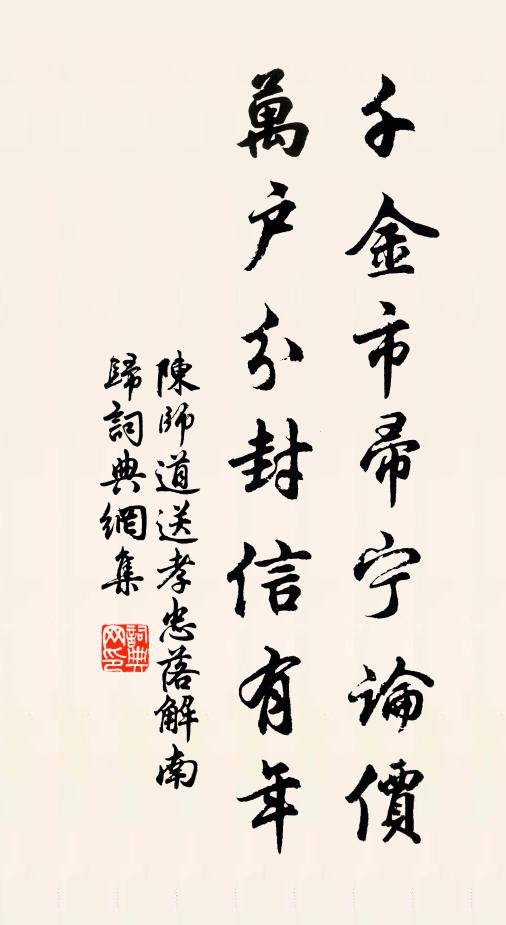 千金市帚宁論價
萬户分封信有年
陳師道送孝忠落解南
歸詞典網集
詞典
网印